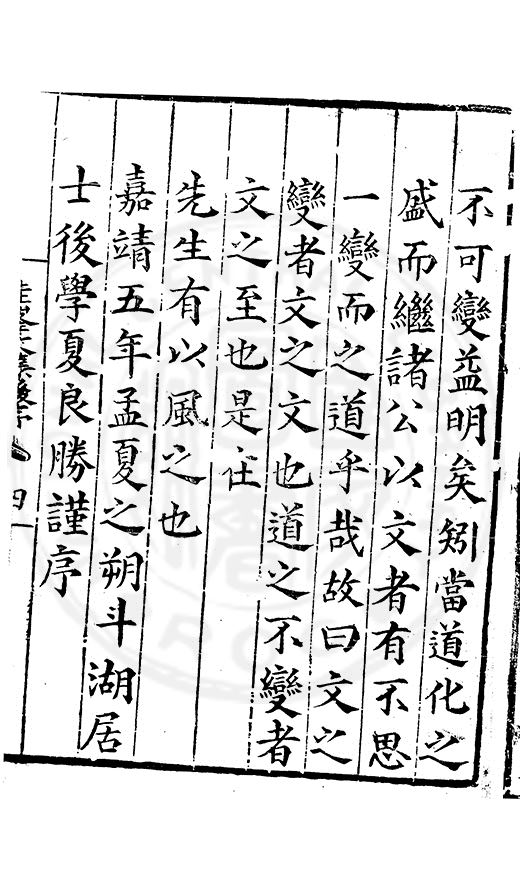 不可變益明矣矧當道化之
盛而繼諸公以文者有不思
一變而之道乎哉故曰文之
變者文之文也道之不變者
文之至也是在
先生有以風之也
嘉靖五年孟夏之朔斗湖居
士後學夏良勝謹序
四